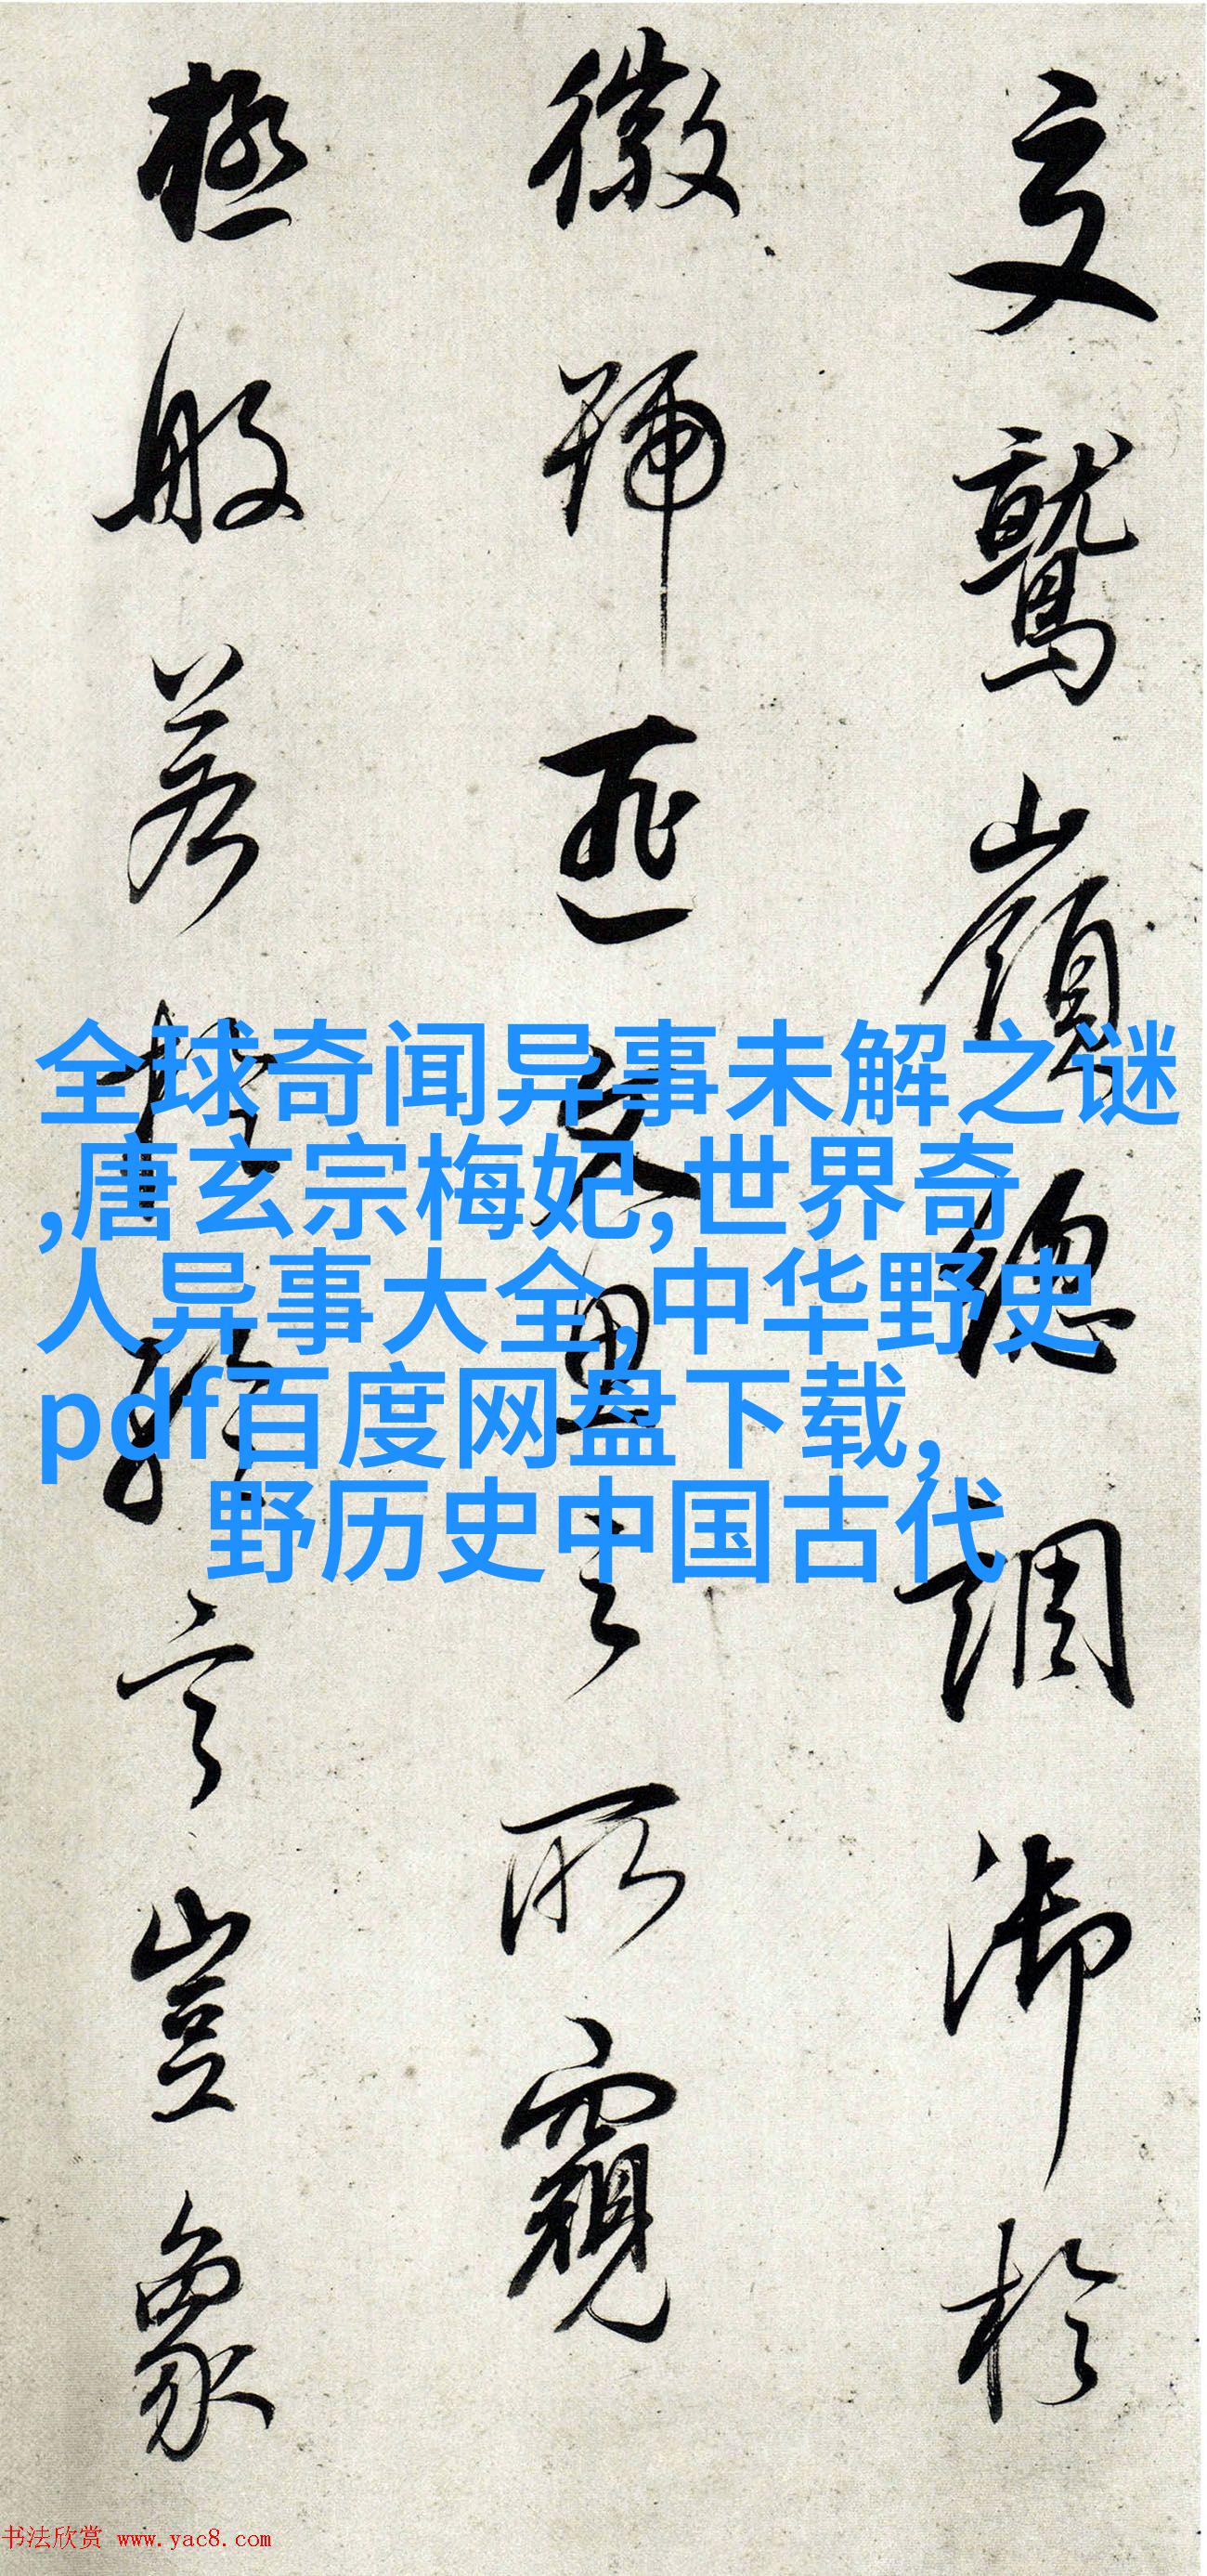 文鷲嶺總調御於
徽號匪文思之所窺
極般若
言豈象
全球奇闻异事未解之谜
,唐玄宗梅妃,世界奇
人异事大全,中华野史
pdf百度网盘下载,
野历史中国古代
书法欣赏 www.yac8.com